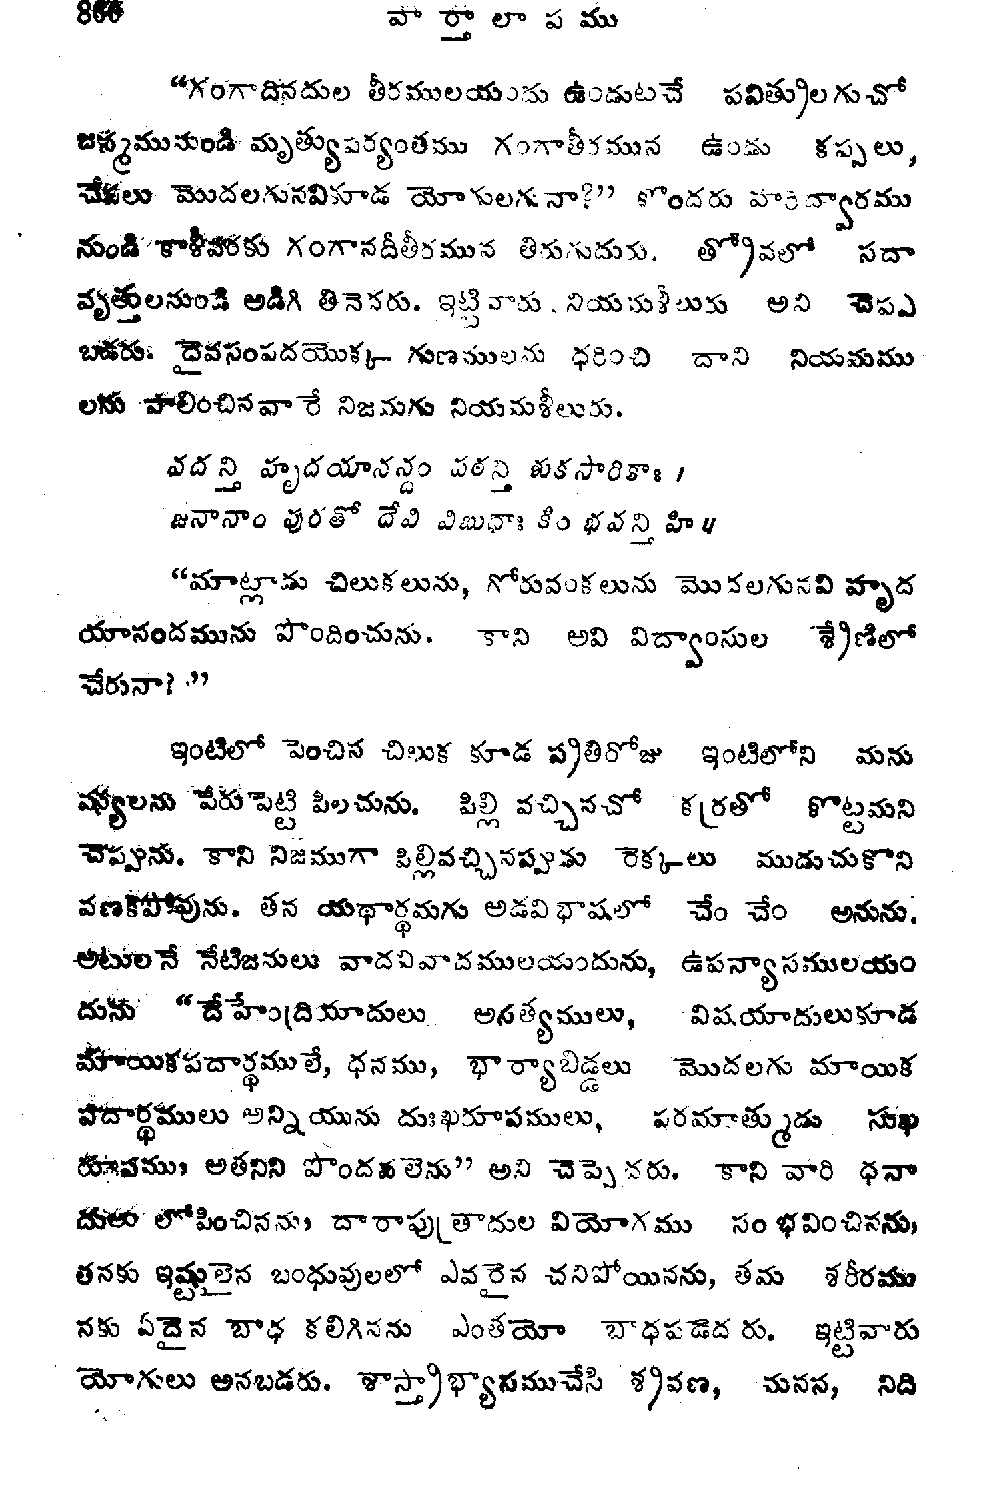 వార్తాలాపము
“గంగాదినదుల తీరములయందు ఉండుటచే పవిత్రులగుచో
జన్మమునుండి మృత్యుపర్యంతము గంగాతీరమున ఉండు కప్పలు,
చేపలు మొదలగునవికూడ యోగులగునా?” కొందరు హరిద్వారము
నుండి కాశీవరకు గంగానదీతీరమున తిరుగుదురు. త్రోవలో సదా
వృత్తులనుండి అడిగి తినెదరు. ఇట్టివారు నియమశీలురు అని చెపప
బడరు. దైవసంపదయొక్క గుణములను ధరించి దాని నియమము
లను పాలించినవారే నిజమగు నియమశీలురు.
వదన్తి హృదయానన్దం పఠన్తి శుకసారికాః ।
జనానాం పురతో దేవి విబుధాః కిం భవన్తి హి ॥
“మాట్లాడు చిలుకలును, గోరువంకలును మొదలగునవి హృద
యానందమును పొందించును. కాని అవి విద్వాంసుల శ్రేణిలో
చేరునా?”
ఇంటిలో పెంచిన చిలుక కూడ ప్రతిరోజు ఇంటిలోని మను
ష్యులను పేరుపెట్టి పిలచును. పిల్లి వచ్చినచో కర్రతో కొట్టమని
చెప్పును. కాని నిజముగా పిల్లివచ్చినప్పుడు రెక్కలు ముడుచుకొని
వణకిపోవును. తన యథార్థమగు అడవిభాషలో చేం చేం అనును.
అటులనే నేటిజనులు వాదవివాదములయందును, ఉపన్యాసములయం
దును “దేహేంద్రియాదులు అసత్యములు, విషయాదులుకూడ
మాయికపదార్థములే, ధనము, భార్యాబిడ్డలు మొదలగు మాయిక
పదార్థములు అన్నియును దుఃఖరూపములు, పరమాత్ముడు సుఖ
రూపము, అతనిని పొందవలెను” అని చెప్పెదరు. కాని వారి ధనా
దులు లోపించినను, దారాపుత్రాదుల వియోగము సంభవించినను,
తనకు ఇష్టులైన బంధువులలో ఎవరైన చనిపోయినను, తమ శరీరము
నకు ఏదైన బాధ కలిగినను ఎంతయో బాధపడెదరు. ఇట్టివారు
యోగులు అనబడరు. శాస్త్రాభ్యాసముచేసి శ్రవణ, మనన, నిది